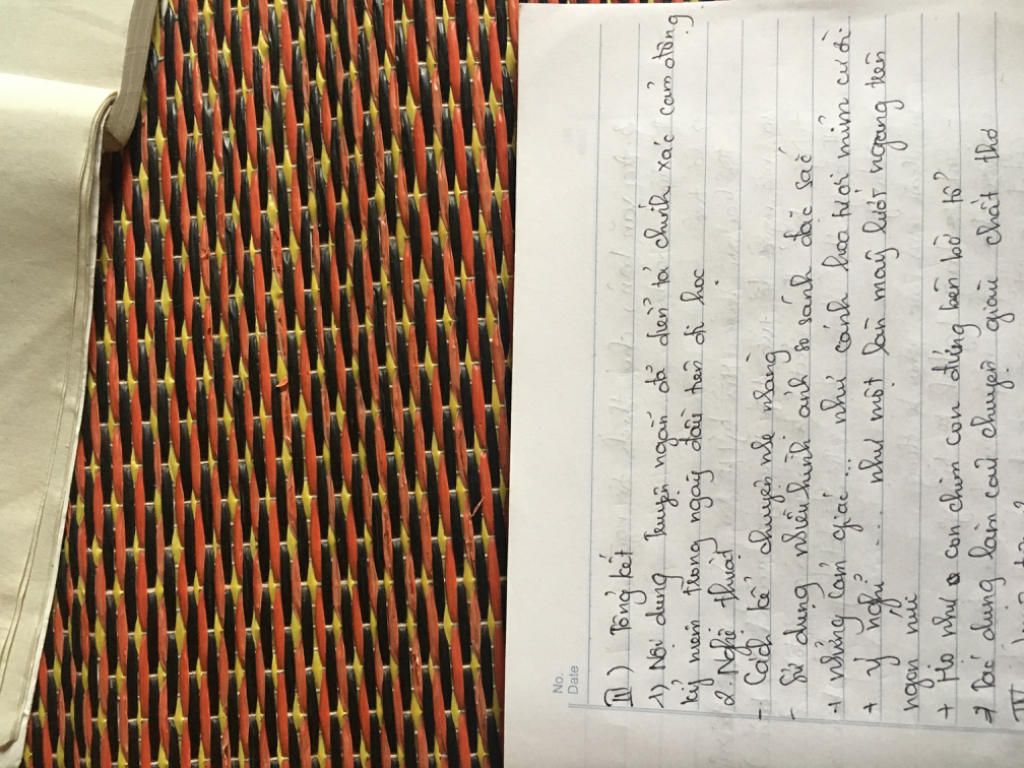 No.
Date
III) Tổng kết
1) Nội dung Truyện ngắn đã diễn tả chính xác cảm động
kỷ niệm trong ngày đầu tiên đi học
2. Nghệ thuật
- Cách kể chuyện nhẹ nhàng
- Sử dụng nhiều hình ảnh so sánh đặc sắc
+ những cảm giác ... như cánh hoa tươi mỉm cười
+ ý nghĩ ... như một làn mây lướt ngang trên
ngọn núi
+ Họ như con chim con đứng bên bờ tổ?
=> Tác dụng làm câu chuyện giàu chất thơ